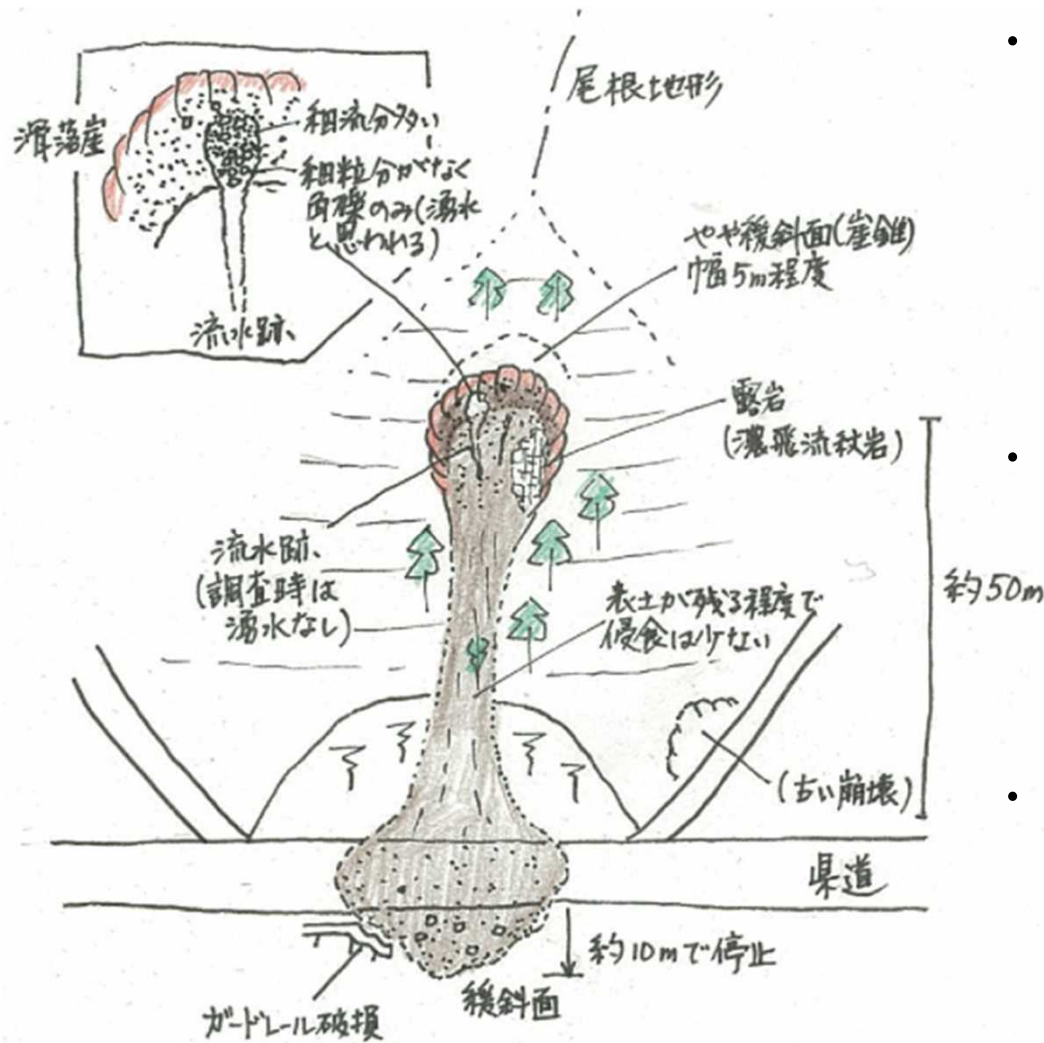 滑落崖
細流分多い
細粒分がなく
角礫のみ(湧水
と思われる)
流水跡
尾根地形
やや緩斜面(崖錐)
幅5m程度
露岩
(濃飛流紋岩)
流水跡
(調査時は
湧水なし)
表土が残る程度で
侵食は少ない
約50m
(古い崩壊)
県道
約10mで停止
緩斜面
ガードレール破損